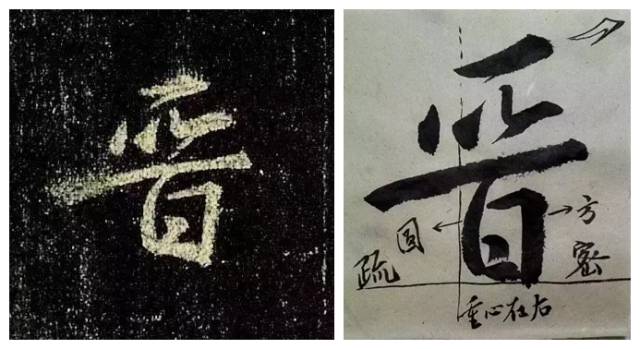 晋
晋
圆 方
疏 密
重心在右